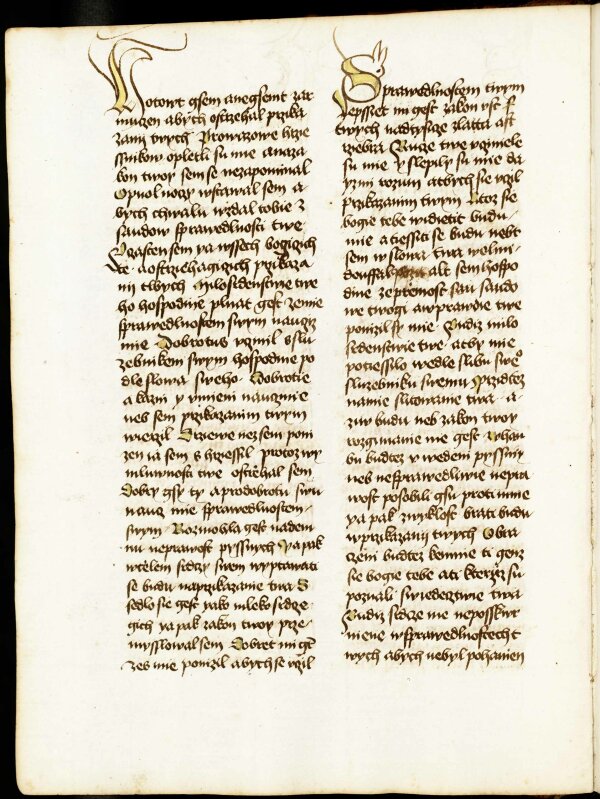 hotowt gsem anegsemt zar
mucen abych ostrzehal przika
zani twych Prowazowe hrzie
ssnikow opletli su mie azaza
kon twoy semse nezapominal
Opuol noczy wstawal sem a
bych chwalu wzdal tobie z
saudow sprawedlnosti twe
Vczasten sem ya wssech bogiczich
tie aostrziehagiczich przikaza
ni twych Milosrdenstwie twe
ho hospodine plnat gest zemie
sprawedlnostem swym naucz
mie Dobrotus vczinil sslu
zebnikem swym hospodine po
dle slowa sweho Dobrotie
a kazni y vmieni naucz mie
neb sem przikazanim twym
wierzil Drziewe nezsem poni
zen ia sem shrzessyl protoz wy
mluwnosti twe ostrzehal sem
Dobry gsy ty a prodobrotu swu
naucz mie sprawedlnostem
swym Rozmohla gest nademnu
nu neprawost pyssnych yapak
wcelem sidczy swem wyptawati
se budu naprzikazanie twa S
sedlo sie gest yako mleko sidcze
gich ya pak zakon twoy prze
mysslowal sem Dobret mi gt
zes mie ponizil abych se vczil
Sprawedlnostem twym
lepssiet mi gest zakon vst
twych nadtysicze zlatta a st
rziebra Rucze twe vczinele
su mie y slepily su mie da
yzmi rozum atbych se vczil
przikazanim twym Ktoz sie
bogie tebe widietit budu
mie atiessiti se budu nebt
sem wslowa twa welmi
douffal alt sem hospo
dine ze prenost sau saudo
we twogi awprawdie twe
ponizil sy mie Budiz milo
srdenstwie twe atby mie
potiessilo wedle slibu swe
sluzebniku swemu Przidtez
namie slitowanie twa a
ziw budu neb zakon twoy
rozgimanie me gest Zhan
bu budtez vwedeni pyssny
neb nesprawedliwie nepra
wost posobili gsu proti mnie
ya pak zwyklost brati budu
wprzikazani twych Obra
czeni budtez kemnie ti genz
sie bogie tebe ati kterziz su
poznali swiedeczstwie twa
Budiz sidcze me neposkwr
niene wsprawedlnostech t
wych abych nebyl pohanien